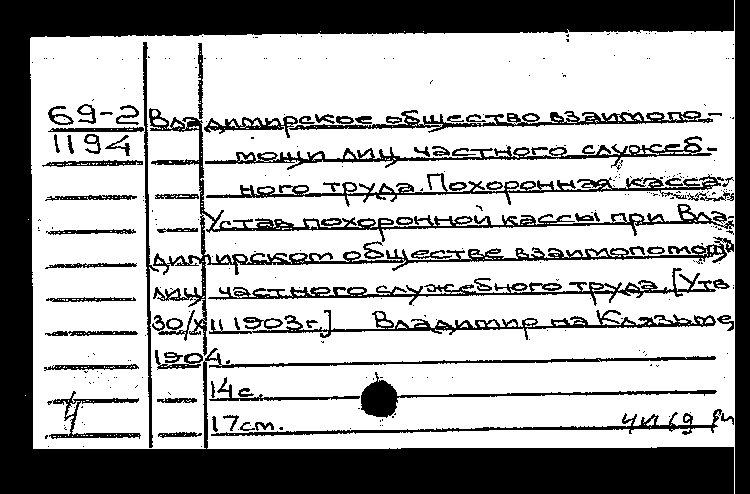 69-2 Владимирское общество взаимопо-
1194 мощи лиц частного служеб-
ного труда. Похоронная касса
Устав похоронной кассы при Вла-
димирском обществе взаимопомощи
лиц частного служебного труда. [Утв
30/XII 1903г.] Владимир на Клязьме,
1904.
14с.
4 17см. 4 VI 69